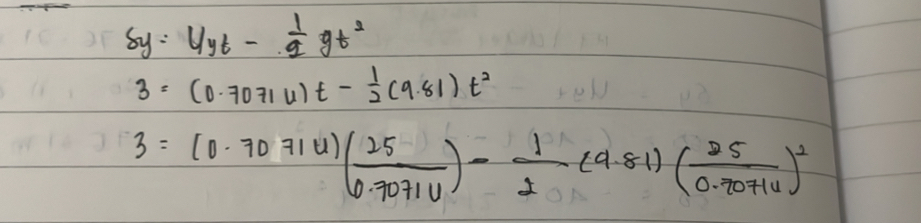 Sy = Uyt - 1/2 gt²
3 = (0.7071 u) t - 1/2 (9.81) t²
3 = (0.7071 u) (25/0.7071 u) - 1/2 (9.81) (25/0.7071 u)²